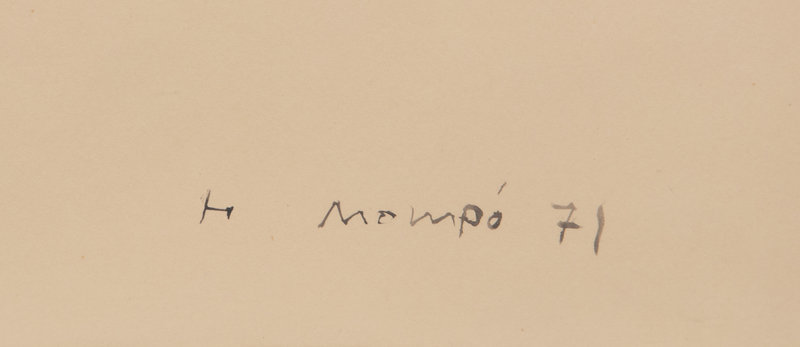 H Mompó 71